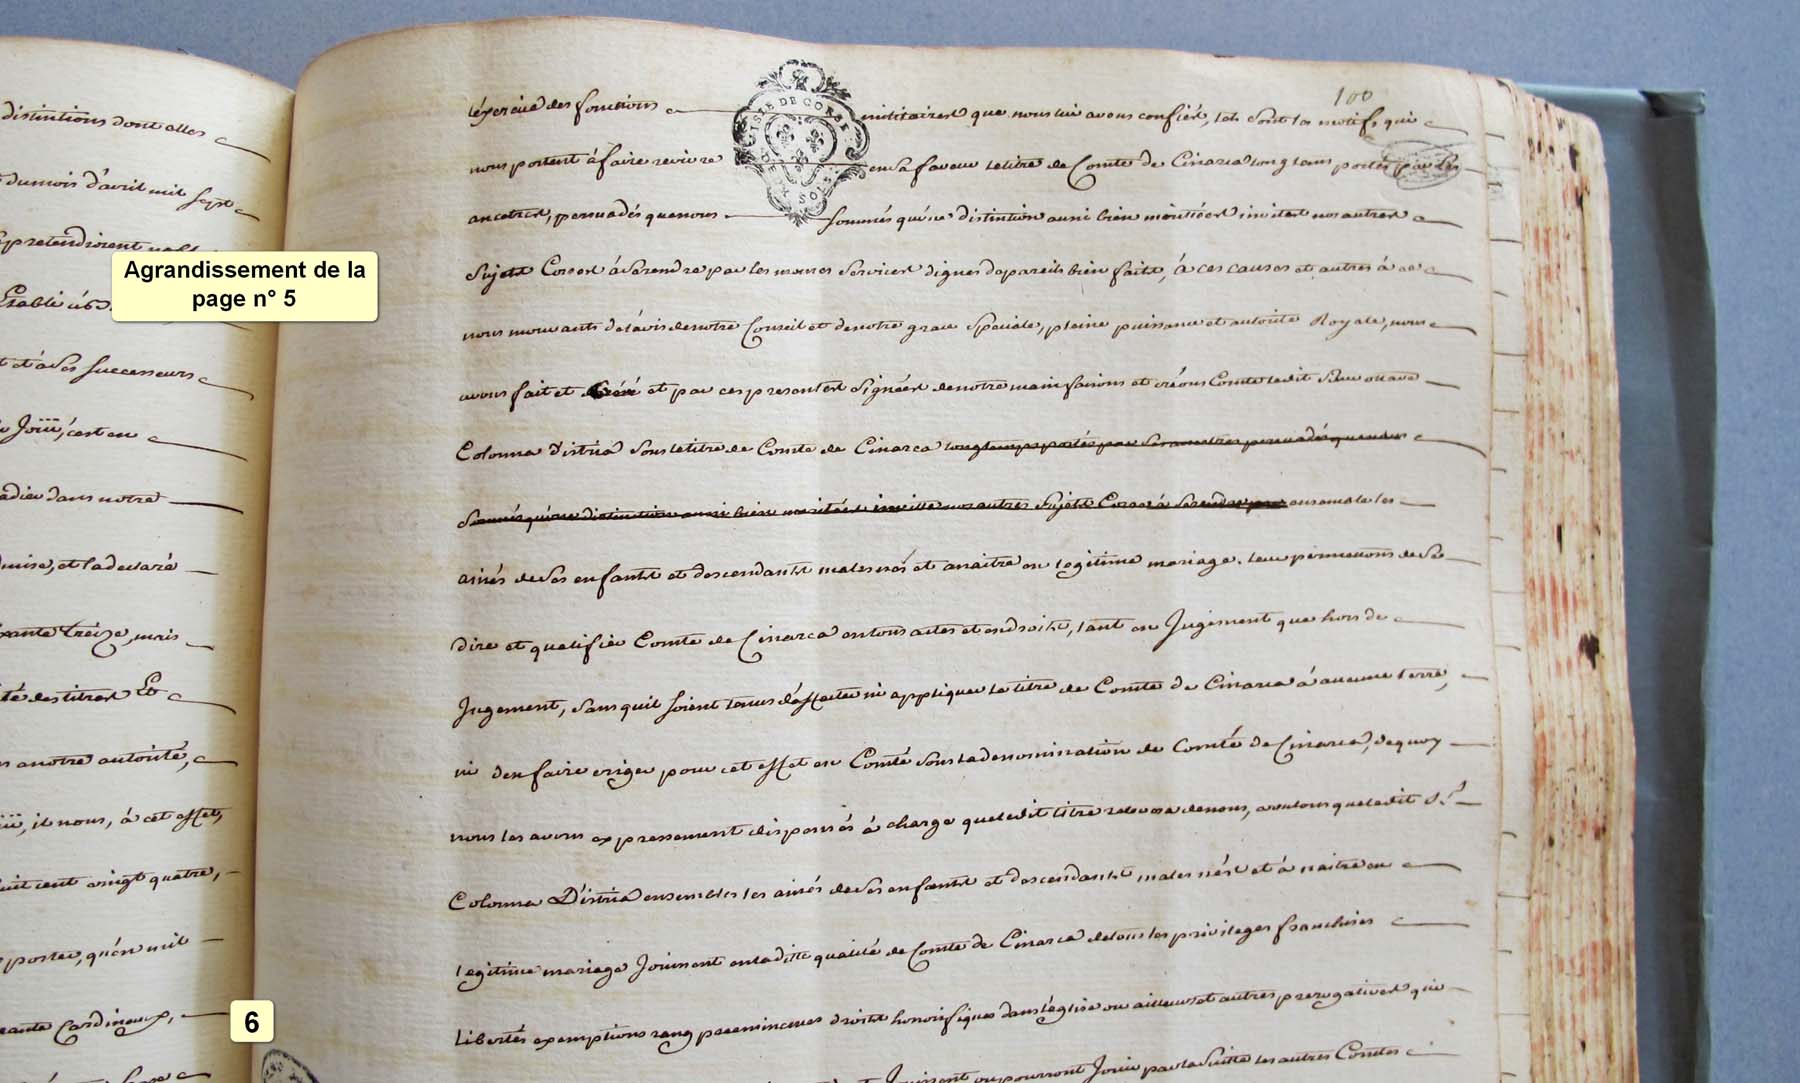 distinctions dont elles
du mois d'avril mil sept
pretendroient
Etabli
et à ses successeurs
Jouir, c'est en
dans notre
et la declaré
soixante treize, mais
té des titres Et
a notre autorité,
il nous, à cet effet,
huit cent vingt quatre,
porter, qu'en mil
Cardineux,
Agrandissement de la
page n° 5
6
100
ISLE DE CORSE
DEUX SOLS
l'éxercice des fonctions militaires que nous lui avons confiés, tels sont les motifs qui
nous portent à faire revivre en sa faveur le titre de Comte de Cinarca longtems portés par ses
ancetres, persuadés que nous sommés qu'une distinction aussi bien meritées inviter nos autres
Sujets Corses à se rendre par les memes services dignes de pareils bien faits, à ces causes et autres à ce
nous mouvants de l'avis de notre Conseil et de notre grace speciale, pleine puissance et autorité Royale, nous
avons fait et créé et par ces presentes signées de notre main faisons et créons Comte ledit Sieur ottave
Colonna d'istria sous le titre de Comte de Cinarca longtemps portés par ses ancetres persuadés que nous
sommés qu'une distinction aussi bien meritées invite nos autres Sujets Corses à se rendre par ensemble les
ainés de ses enfants et descendants males nés et a naitre en legitime mariage. leur permettons de se
dire et qualifier Comte de Cinarca en tous actes et endroits, tant en Jugement que hors de
Jugement, sans quil soient tenus d'affecter ni appliquer le titre de Comte de Cinarca à aucune terre,
ni d'en faire eriger pour cet effet en Comté sous la denomination de Comté de Cinarca, de quoy
nous les avons expressement dispensés à charge que ledit titre relevera de nous, voulons que ledit S.r
Colonna D'istria ensembles les ainés de ses enfants et descendants males nés et à naitre en
legitime mariage Jouissent en la ditte qualité de Comte de Cinarca de tous les privileges franchises
Libertés exemptions rang preeminences droits honorifiques dans l'eglise ou ailleurs et autres prerogatives qui
Jouissent ou pourront Jouir par la suitte les autres Comtes